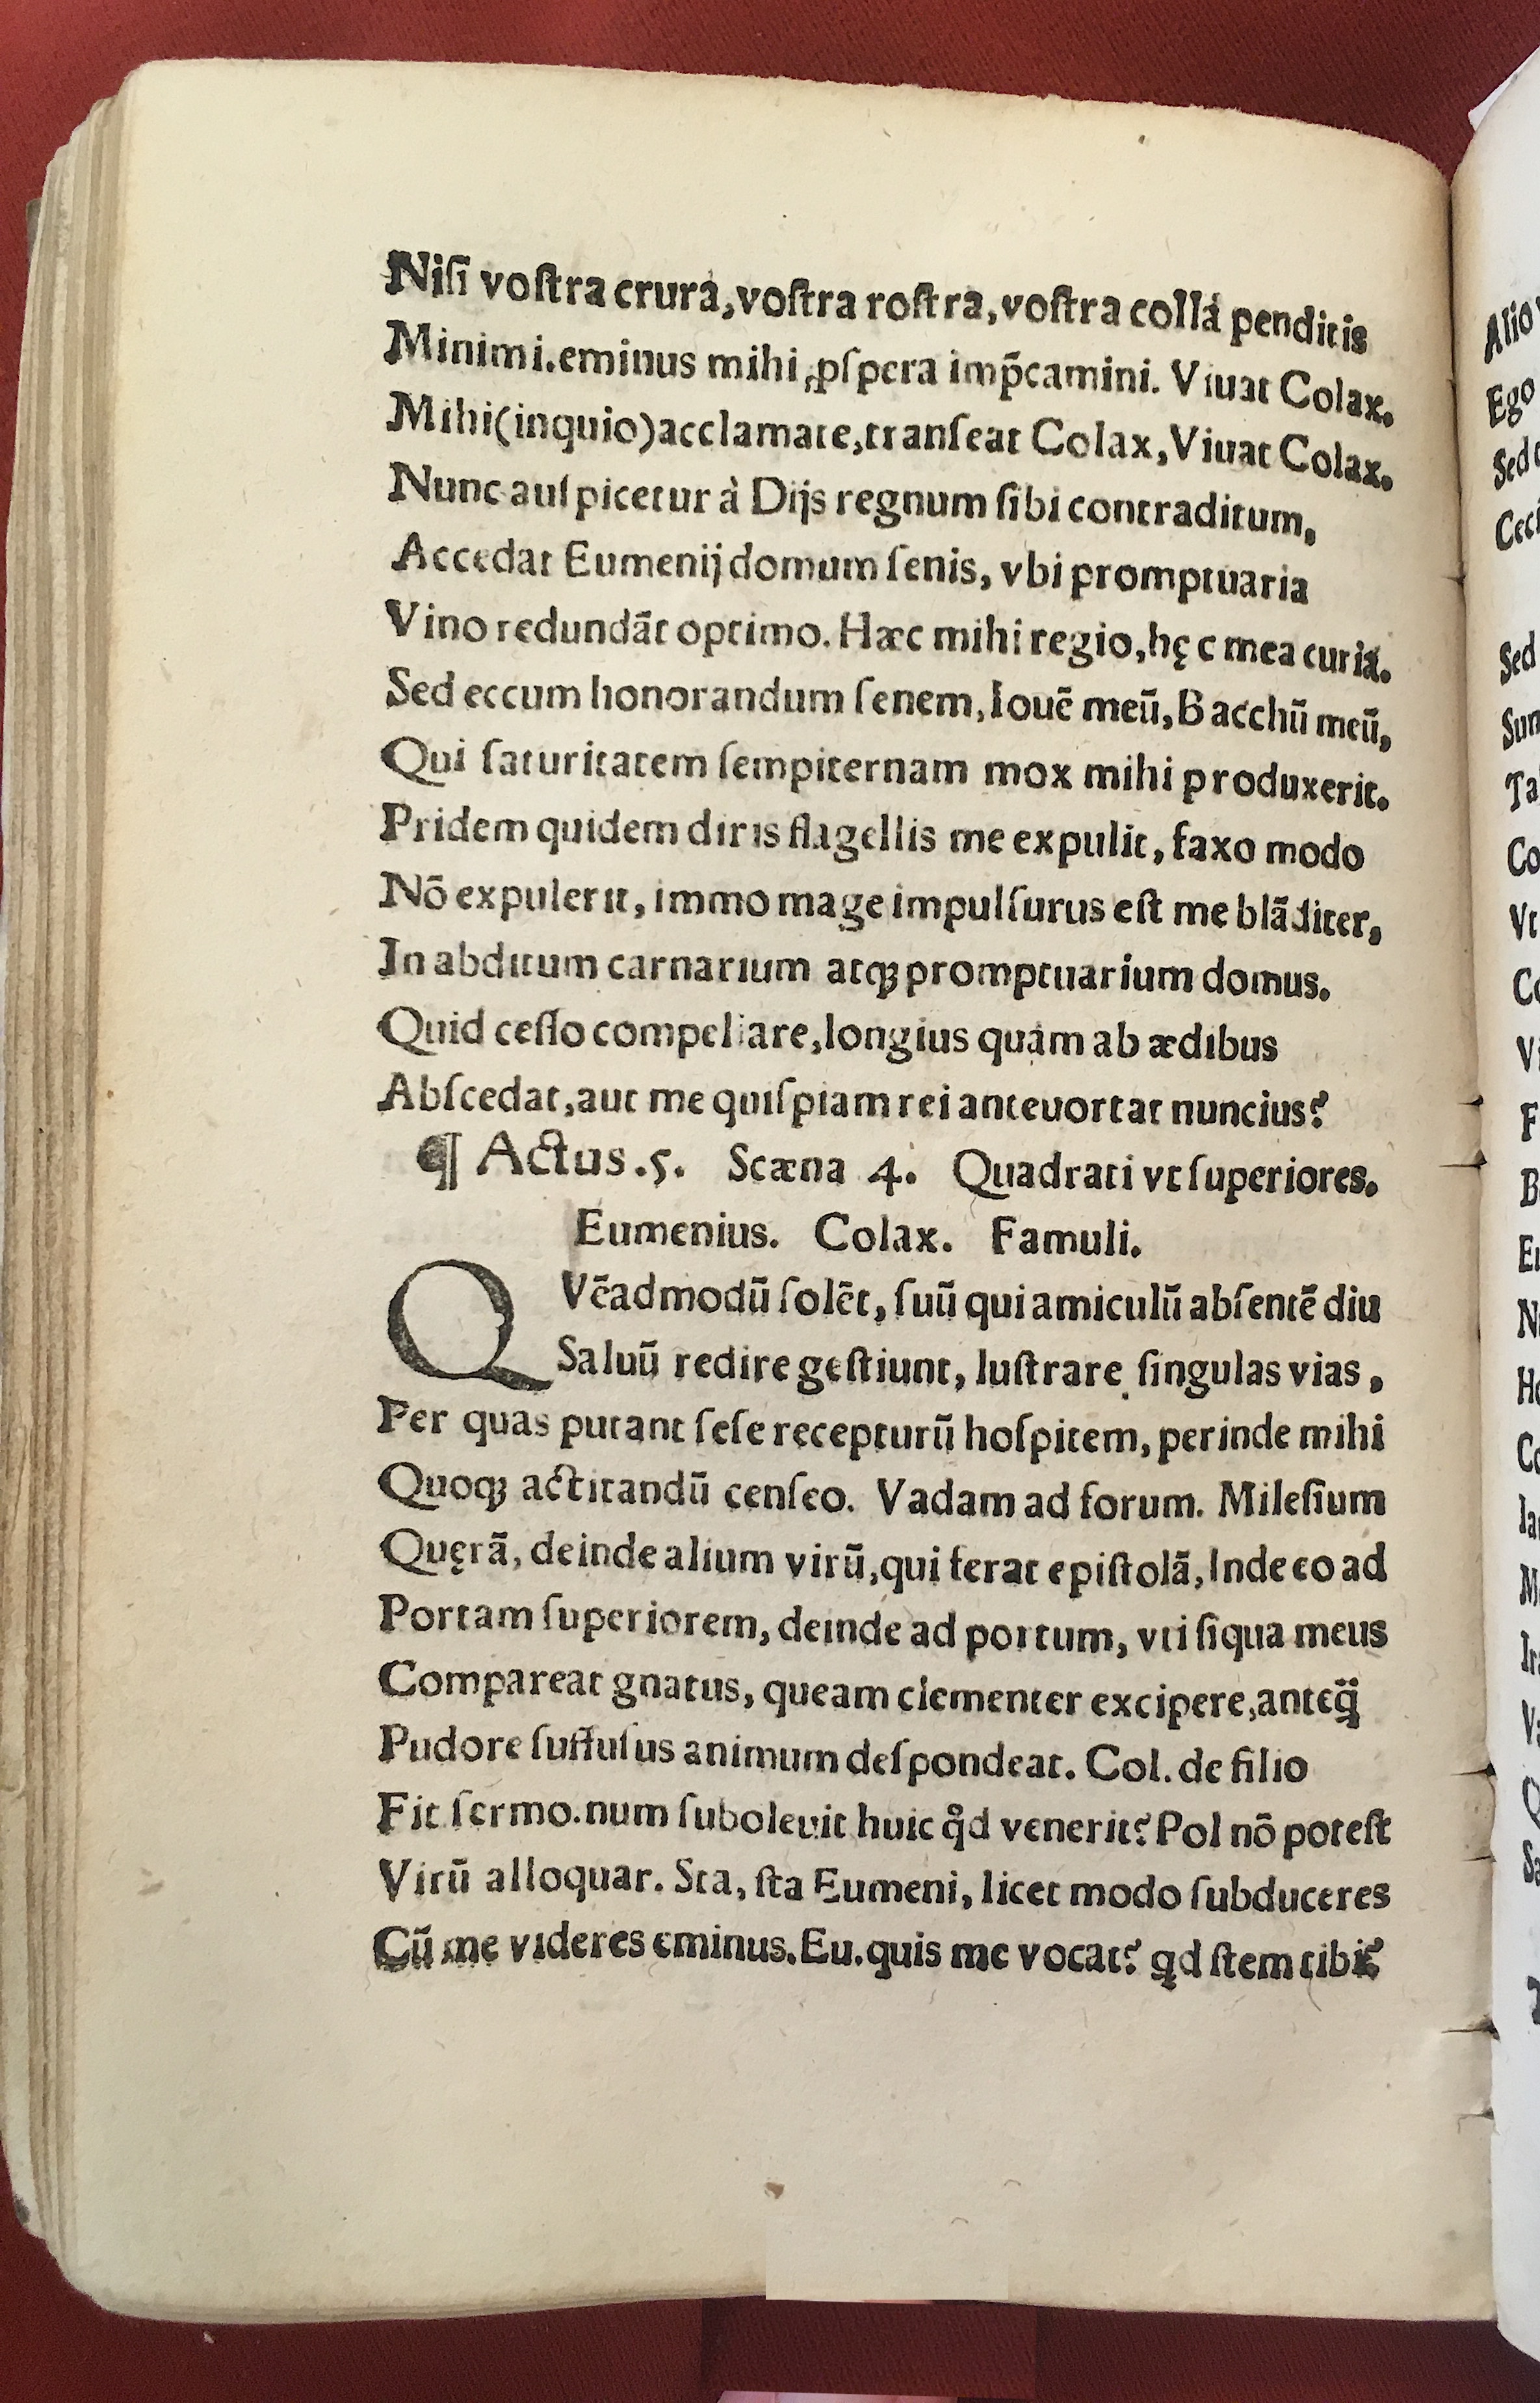 Niſi voſtra crura, voſtra roſtra, voſtra colla penditis
Minimi. eminus mihi ꝓſpera imp̃camini. Viuat Colax.
Mihi (inquio) acclamate, tranſeat Colax, Viuat Colax.
Nunc auſpicetur à Dijs regnum ſibi contraditum,
Accedat Eumenij domum ſenis, vbi promptuaria
Vino redundãt optimo. Hæc mihi regio, hęc mea curia.
Sed eccum honorandum ſenem, Iouẽ meũ, Bacchũ meũ,
Qui ſaturitatem ſempiternam mox mihi produxerit.
Pridem quidem diris flagellis me expulit, faxo modo
Nõ expulerit, immo mage impulſurus eſt me blãditer,
In abditum carnarium atqꝫ promptuarium domus.
Quid ceſſo compellare, longius quàm ab ædibus
Abſcedat, aut me quiſpiam rei anteuortat nuncius?
¶ Actus .5. Scæna 4. Quadrati vt ſuperiores.
Eumenius. Colax. Famuli.
QVẽadmodũ ſolẽt, ſuũ qui amiculũ abſentẽ diu
Saluũ redire geſtiunt, luſtrare ſingulas vias,
Per quas putant ſeſe recepturũ hoſpitem, perinde mihi
Quoqꝫ actitandũ cenſeo. Vadam ad forum. Mileſium
Quęrã, deinde alium virũ, qui ferat epiſtolã, Inde eo ad
Portam ſuperiorem, deinde ad portum, vti ſiqua meus
Compareat gnatus, queam clementer excipere, anteq̃
Pudore ſuffuſus animum deſpondeat. Col. de filio
Fit ſermo. num ſuboleuit huic qͦd venerit? Pol nõ poteſt
Virũ alloquar. Sta, ſta Eumeni, licet modo ſubduceres
Cũ me videres eminus. Eu. quis me vocat? qd ſtem tibi?
Alio
Ego
Sed
Ceci
Sed
Sun
Ta
Co
Vt
Co
Vi
F
B
Eu
N
Ho
Co
Ia
M
Ir
V
Q
Sa